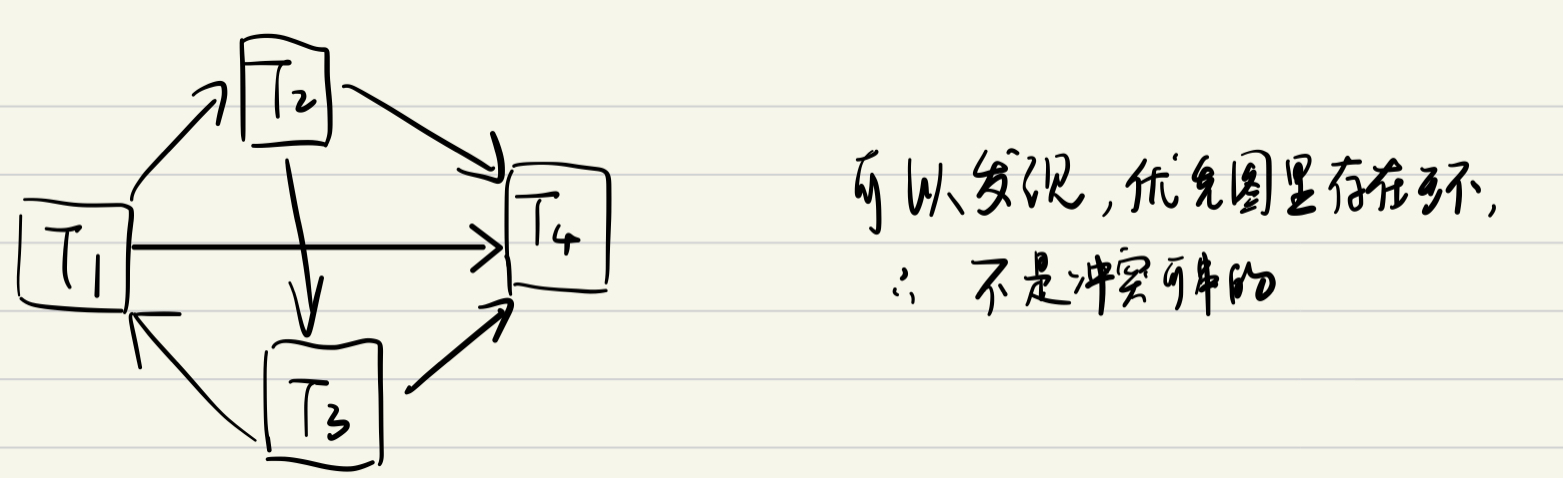 T2
T1
T4
T3
可以发现,优先图里存在环,
∴ 不是冲突可串的